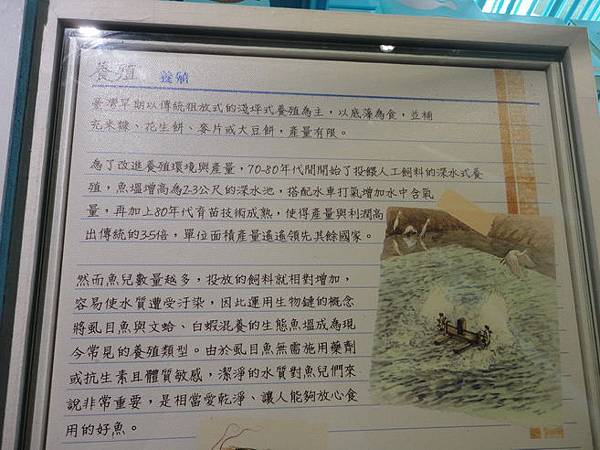 養殖
臺灣早期以傳統粗放式的淺坪式養殖為主，以底藻為食，並補
充米糠、花生餅、麥片或大豆餅，產量有限。
為了改進養殖環境與產量，70-80年代間開始了投餵人工飼料的深水式養
殖，魚塭增高為2-3公尺的深水池，搭配水車打氣增加水中含氧
量，再加上80年代育苗技術成熟，使得產量與利潤高
出傳統的3-5倍，單位面積產量遙遙領先其餘國家。
然而魚兒數量越多，投放的飼料就相對增加，
容易使水質遭受汙染，因此運用生物鏈的概念
將虱目魚與文蛤、白蝦混養的生態魚塭成為現
今常見的養殖類型。由於虱目魚無需施用藥劑
或抗生素且體質敏感，潔淨的水質對魚兒們來
說非常重要，是相當愛乾淨、讓人能夠放心食
用的好魚。